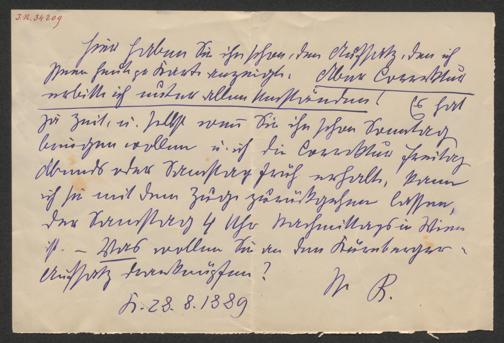 I.N. 34209
Hier haben Sie ihn schon, den Aufsatz, den ich
Ihnen heut per Karte anzeigte. Aber Correktur
erbitte ich unter allen Umständen! Es hat
ja Zeit, u. selbst wenn Sie ihn schon Sonntag
bringen wollen u. ich die Correktur Freitag
Abends oder Samstag früh erhalte, kann
ich sie mit dem Zuge zurückgehen lassen,
der Samstag 4 Uhr Nachmittags in Wien
ist. – Was wollen Sie an den Kürnberger-
Aufsatz
28. 8. 1889
R.